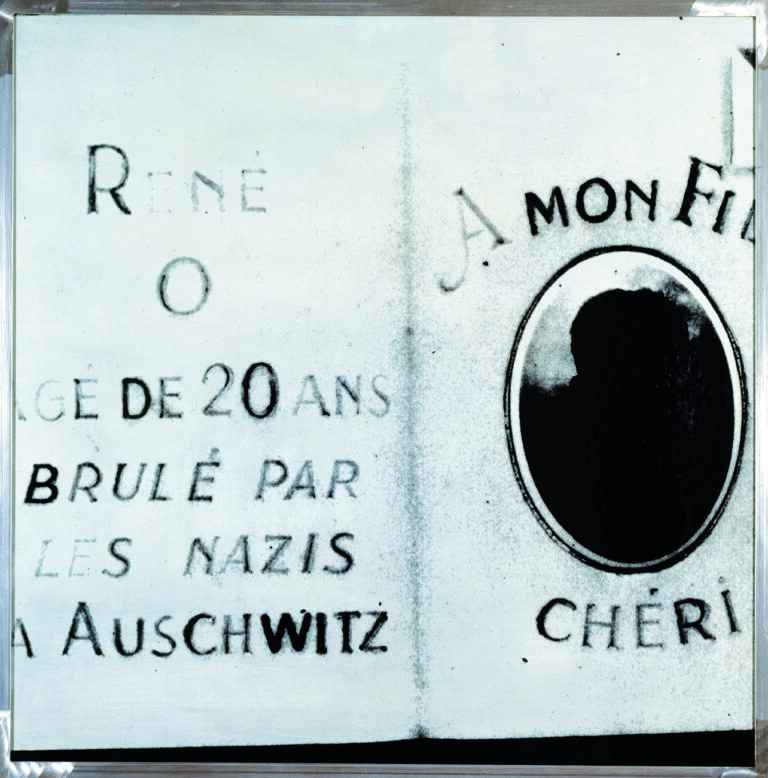 RENÉ
O
AGÉ DE 20 ANS
BRULÉ PAR
LES NAZIS
A AUSCHWITZ
A MON FIL
CHÉRI